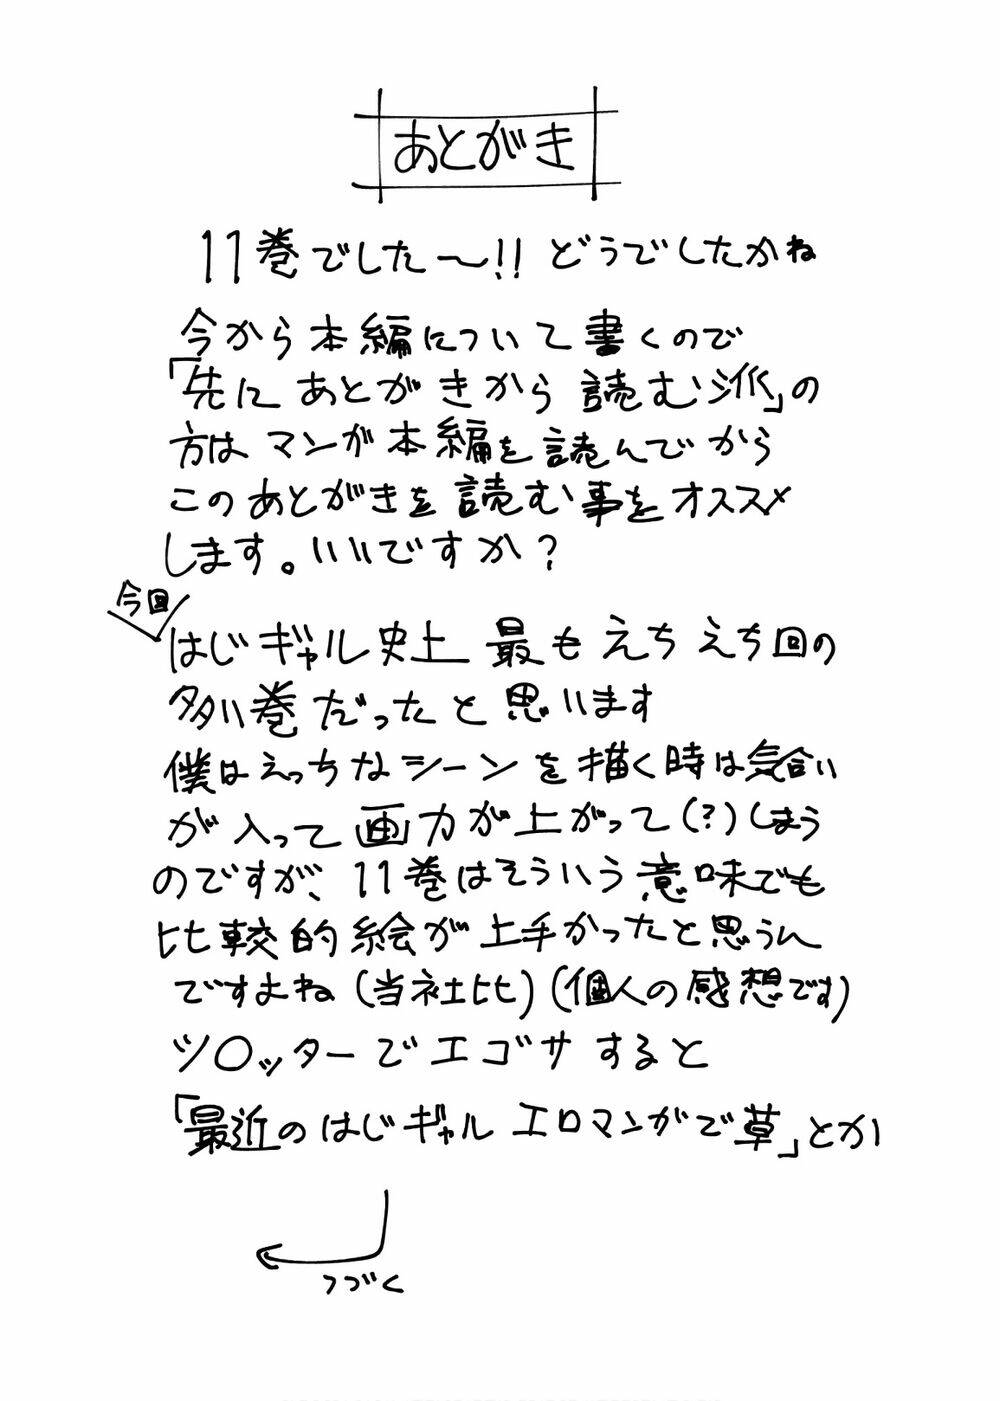 あとがき
11巻でした〜!! どうでしたかね
今から本編について書くので
「先にあとがきから読む派」の
方はマンガ本編を読んでから
このあとがきを読む事をオススメ
します。いいですか?
今回
はじギャル史上 最もえちえち回の
多い巻だったと思います
僕はえっちなシーンを描く時は気合い
が入って画力が上がって(?)しまう
のですが、11巻はそういう意味でも
比較的絵が上手かったと思うん
ですよね(当社比)(個人の感想です)
ツ〇ッターでエゴサすると
「最近のはじギャル エロマンガで草」とか
つづく